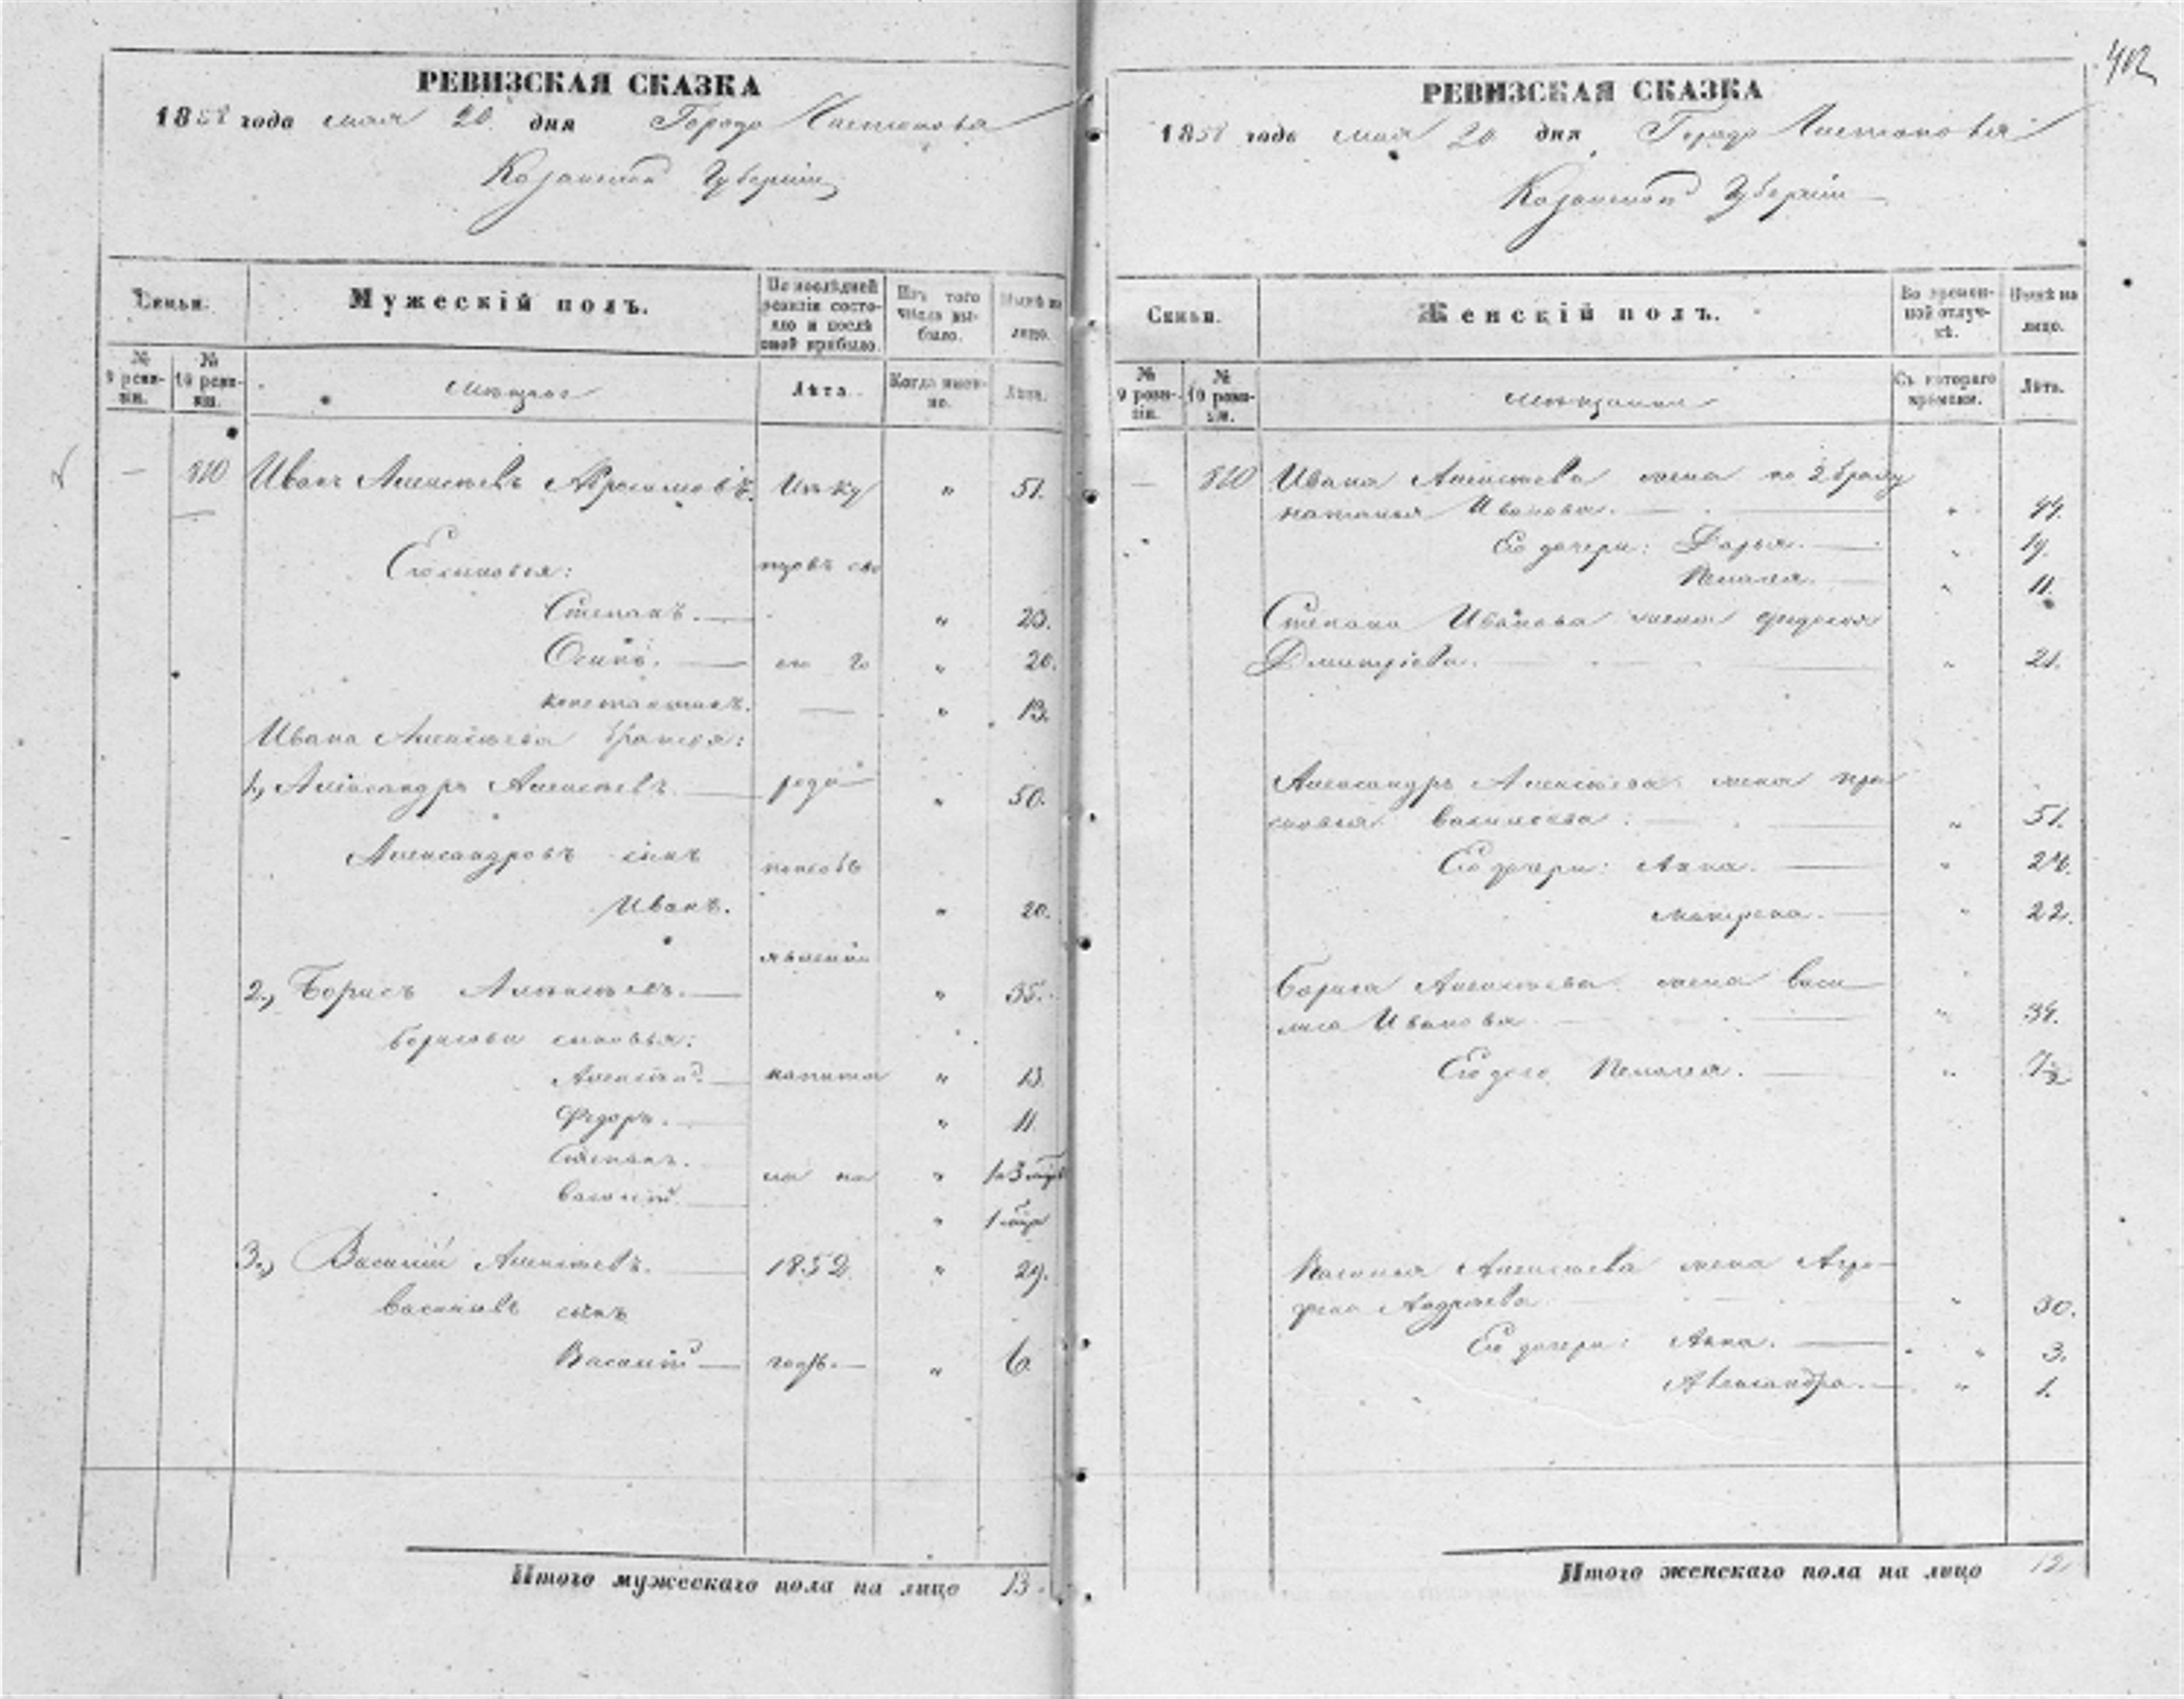 РЕВИЗСКАЯ СКАЗКА
1858 года мая 20 дня Города Чистополя
Казанской Губерніи
Семьи.
Мужескій полъ.
По послѣдней ревизіи состояло и послѣ оной прибыло.
Изъ того числа выбыло.
Нынѣ на лицо.
№ 9 ревизіи.
№ 10 ревизіи.
Мѣщане
Лѣта.
Когда именно.
Лѣта.
— 820 Иванъ Алексѣевъ Изъ ку " 51.
Его сыновья: цовъ
Степанъ. — " 23.
Осипъ. — го " 20.
Константинъ. — " 13.
Ивана Алексѣева братья:
1, Александръ Алексѣевъ. — " 50.
Александровъ сынъ
Иванъ. " 20.
2, Борисъ Алексѣевъ. — " 35.
Борисовы сыновья:
Алексѣй. — капита " 13.
Федоръ. — " 11.
Степанъ. ла "
Василій. — "
3, Василій Алексѣевъ. — 1852 " 29.
Васильевъ сынъ
Василій — года. — " 6.
Итого мужескаго пола на лицо 13.
402
РЕВИЗСКАЯ СКАЗКА
1858 года мая 20 дня Города Чистополя
Казанской Губерніи
Семьи.
Женскій полъ.
Во временной отлучкѣ.
Нынѣ на лицо.
№ 9 ревизіи.
№ 10 ревизіи.
Мѣщанки
Съ котораго времени.
Лѣта.
— 820 Ивана Алексѣева жена по 2 браку
Наталья Иванова. — " 44.
Его дочери: Дарья. — " 19.
Пелагея. — " 11.
Степана Иванова жена Федосья
Дмитріева. — " 21.
Александра Алексѣева жена Пра
сковья Васильева: — " 51.
Его дочери: Анна. — " 24.
Матрена. — " 22.
Бориса Алексѣева жена Васи
лиса Иванова — " 34.
Его дочь Пелагея. — "
Василья Алексѣева жена Агра-
фена Андреева — " 30.
Его дочери: Анна. — " 3.
Александра. — " 1.
Итого женскаго пола на лицо 12